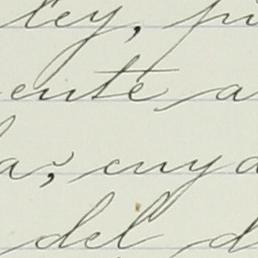 ley, pu
ente a
a, cuya
del d